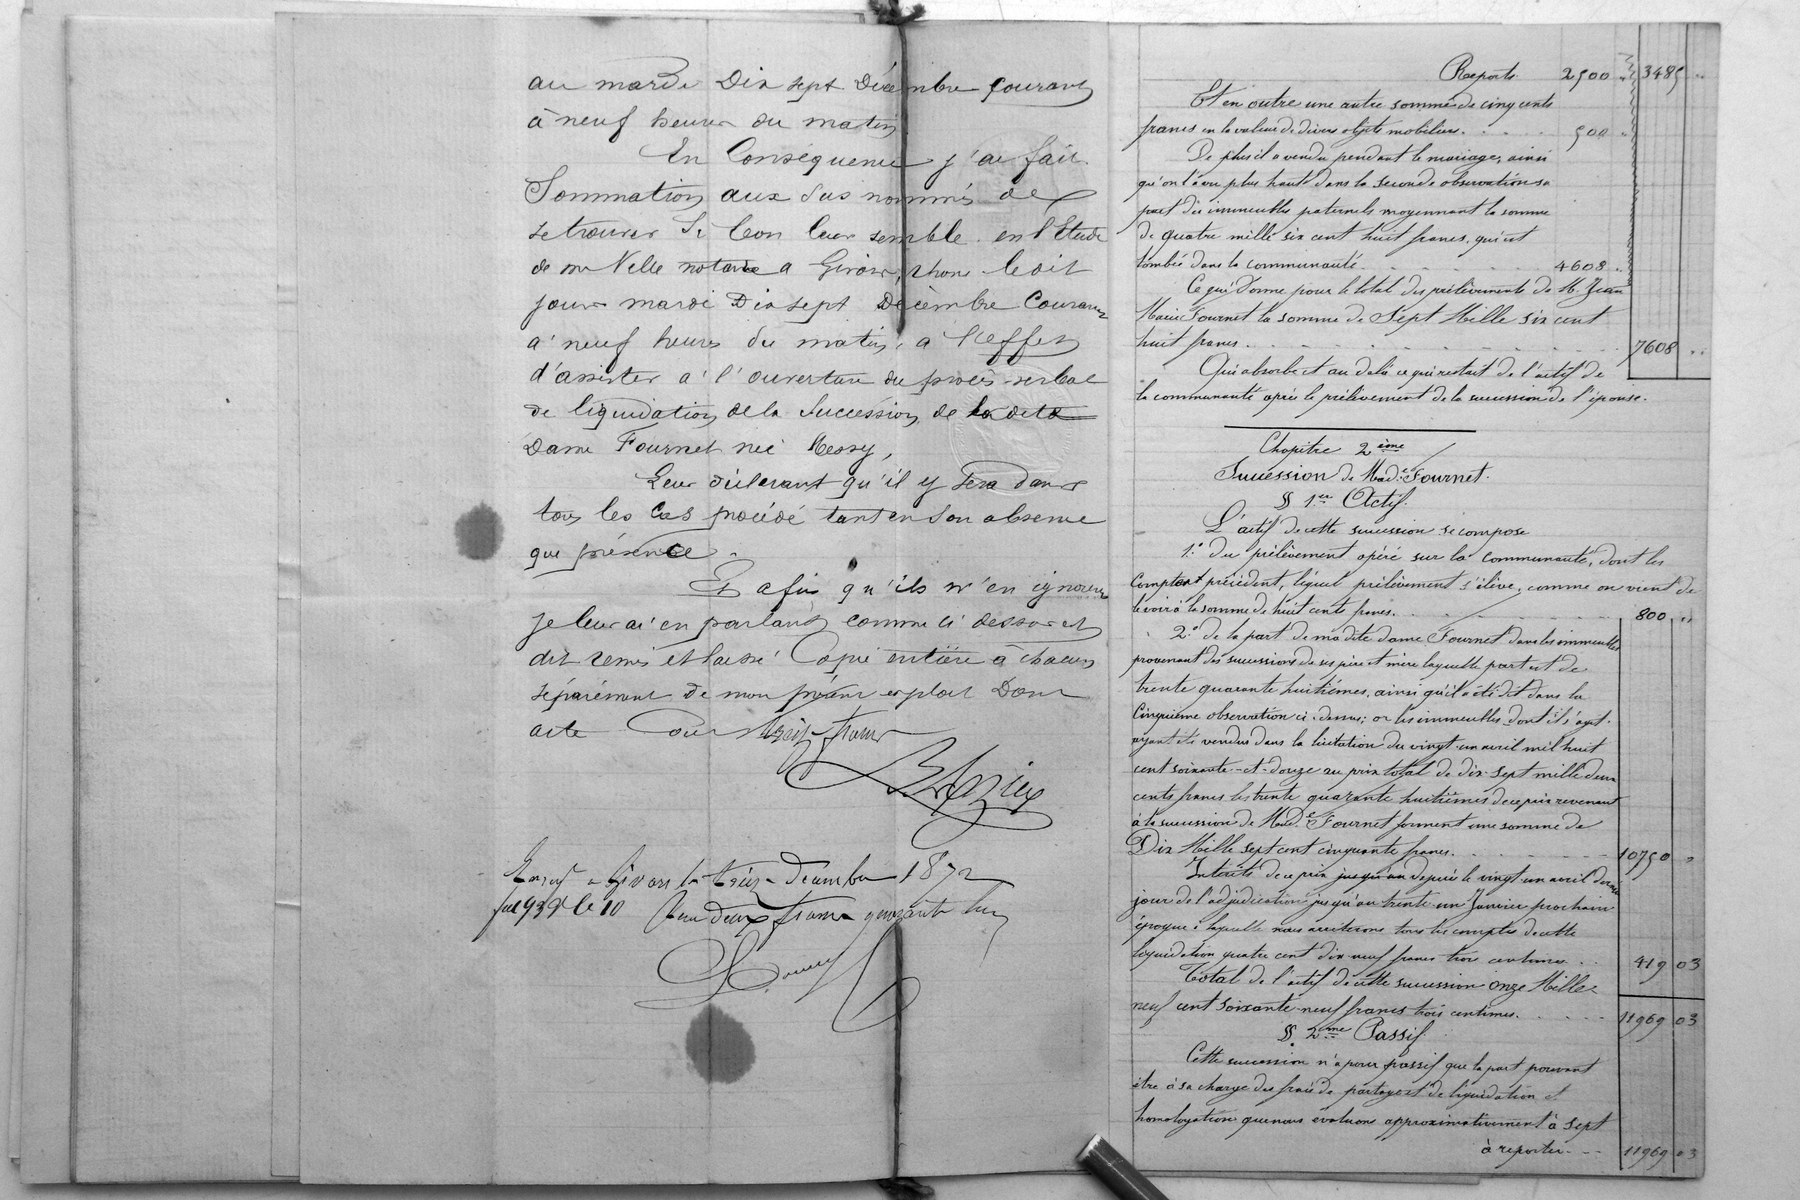 au mardi Dix sept Décembre courant
à neuf heures du matin
En Conséquence j'ai fait
Sommation aux sus nommés de
se trouver Si bon leur semble en l'Etude
de me Velle notaire a Givors, rhone le dit
jour mardi Dix sept Décembre Courant
a neuf heures du matin, a l'effet
d'assister a l'ouverture du procès-verbal
de liquidation de la Succession de la dete
Dame Fournet née Messy,
Leur déclarant qu'il y sera dans
tous les Cas procédé tant en son absence
que présence.
Et afin qu'ils n'en ignorent
je leur ai en parlant comme ci dessus et
dit remis et laissé Copie entière à chacun
séparément de mon présent exploit Dont
acte Cout treize francs
Brazier
Enreg a Givors le treize Decembre 1872
fol 93 Vo Ce 10 Reçu deux francs quarante
Reports. 2500 " 3485 "
Et en outre une autre somme de cinq cents
francs en la valeur de divers objets mobiliers. 500 "
De plus il a vendu pendant le mariage, ainsi
qu'on l'a vu plus haut dans la seconde observation sa
part des immeubles paternels moyennant la somme
de quatre mille six cent huit francs, qui est
tombée dans la communauté 4608 "
Ce qui donne pour le total des prélèvements de M. Jean
Marie Fournet la somme de Sept Mille six cent
huit francs. 7608 "
Qui absorbe et au delà ce qui restait de l'actif de
la communauté après le prélèvement de la succession de l'épouse.
Chapitre 2ème
Succession de Made Fournet.
§ 1er Actif.
L'actif de cette succession se compose
1.° Du prélèvement opéré sur la communauté, dont les
comptes précédent, lequel prélèvement s'élève, comme on vient de
le voir à la somme de huit cents francs. 800 "
2.° de la part de madite dame Fournet dans les immeubles
provenant des successions de ses père et mère laquelle part est de
trente quarante huitièmes, ainsi qu'il a été dit dans la
Cinquième observation ci-dessus; or les immeubles dont il s'agit
ayant été vendus dans la licitation du vingt-un avril mil huit
cent soixante-et-douze au prix total de dix-sept mille deux
cents francs les trente quarante huitièmes de ce prix revenant
à la succession de Made Fournet forment une somme de
Dix Mille sept cent cinquante francs. 10750 "
Intérêts de ce prix jusqu'au depuis le vingt-un avril dernier
jour de l'adjudication jusqu'au trente-un Janvier prochain
époque à laquelle nous arrêterons tous les comptes de cette
liquidation quatre cent dix-neuf francs trois centimes 419 03
Total de l'actif de cette succession onze Mille
neuf cent soixante-neuf francs trois centimes. 11969 03
§ 2me Passif.
Cette succession n'a pour passif que la part pouvant
être à sa charge des frais de partage et de liquidation et
homologation que nous évaluons approximativement à sept
à reporter 11969 03